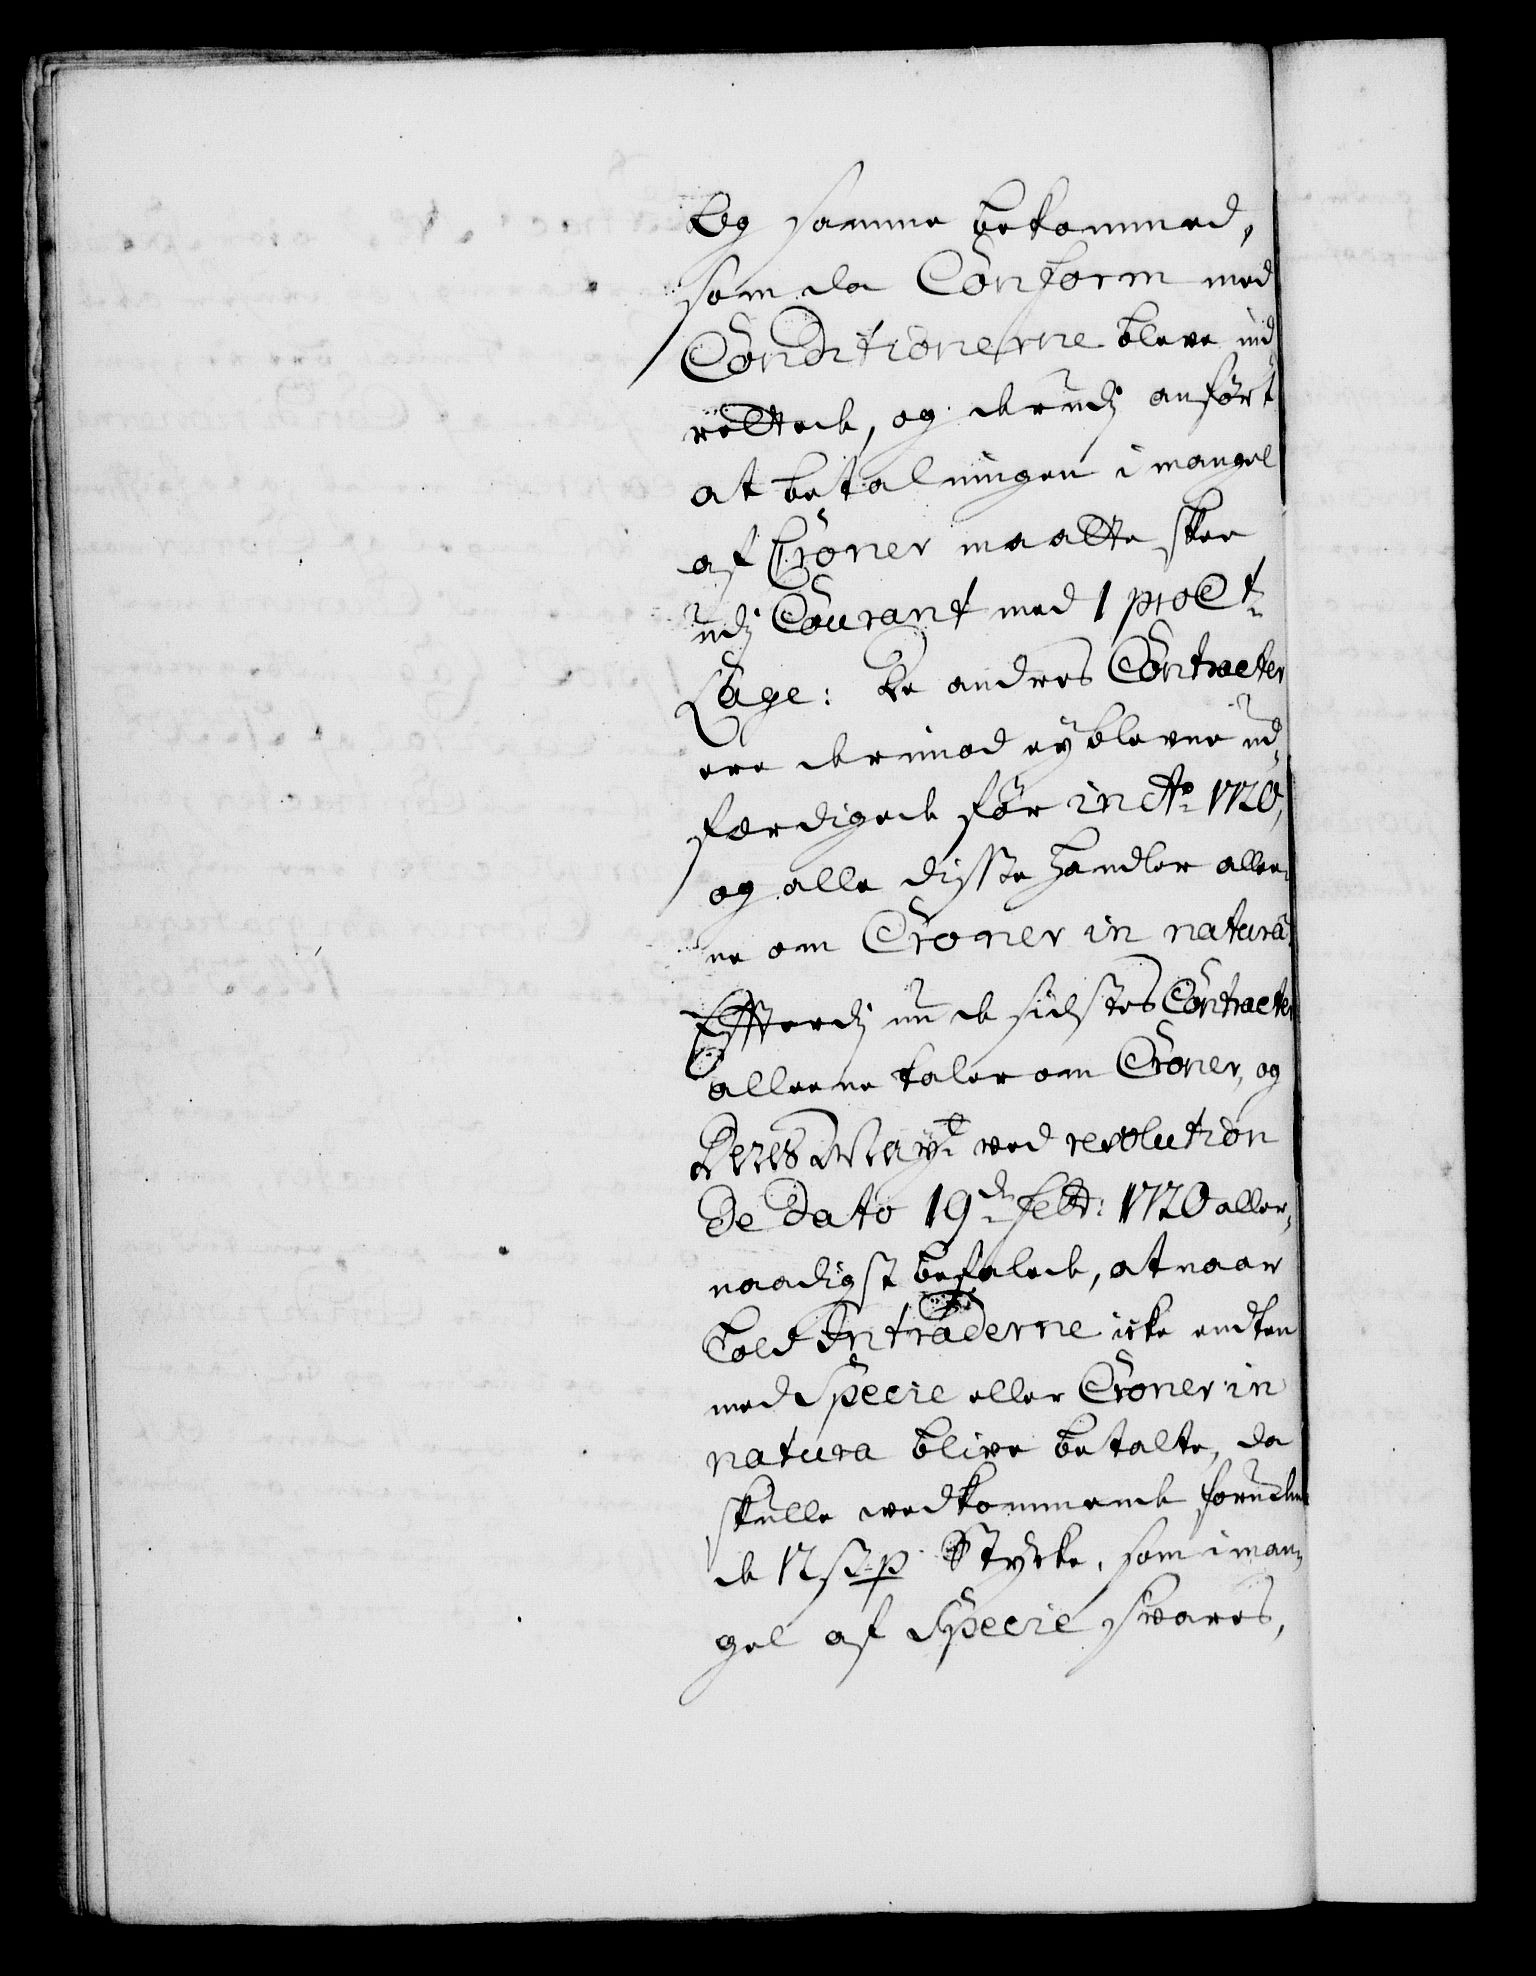 og samme bekommed,
som da Conform med
Conditionerne bleve ind
rettede, og derudj anført
at betalningen i mangel
af Croner maatte skee
udj Courant med 1 proCt.
Lage: De andres Contracter
ere derimod ey blevne ud-
færdigede før in Ao. 1720,
og alle disse handler allee-
ne om Croner in natura.
Efterdj nu de sidstes Contracter
alleene taler om Croner, og
Deres Mayt. ved resolution
De Dato 19de febr: 1720 aller-
naadigst befalede, at naar
Told Intraderne icke endten
med Specie eller Croner in
natura blive betalte, da
skulle vedkommende foruden
de 12 sz p Stycke, som i man-
gel af Specie svares,